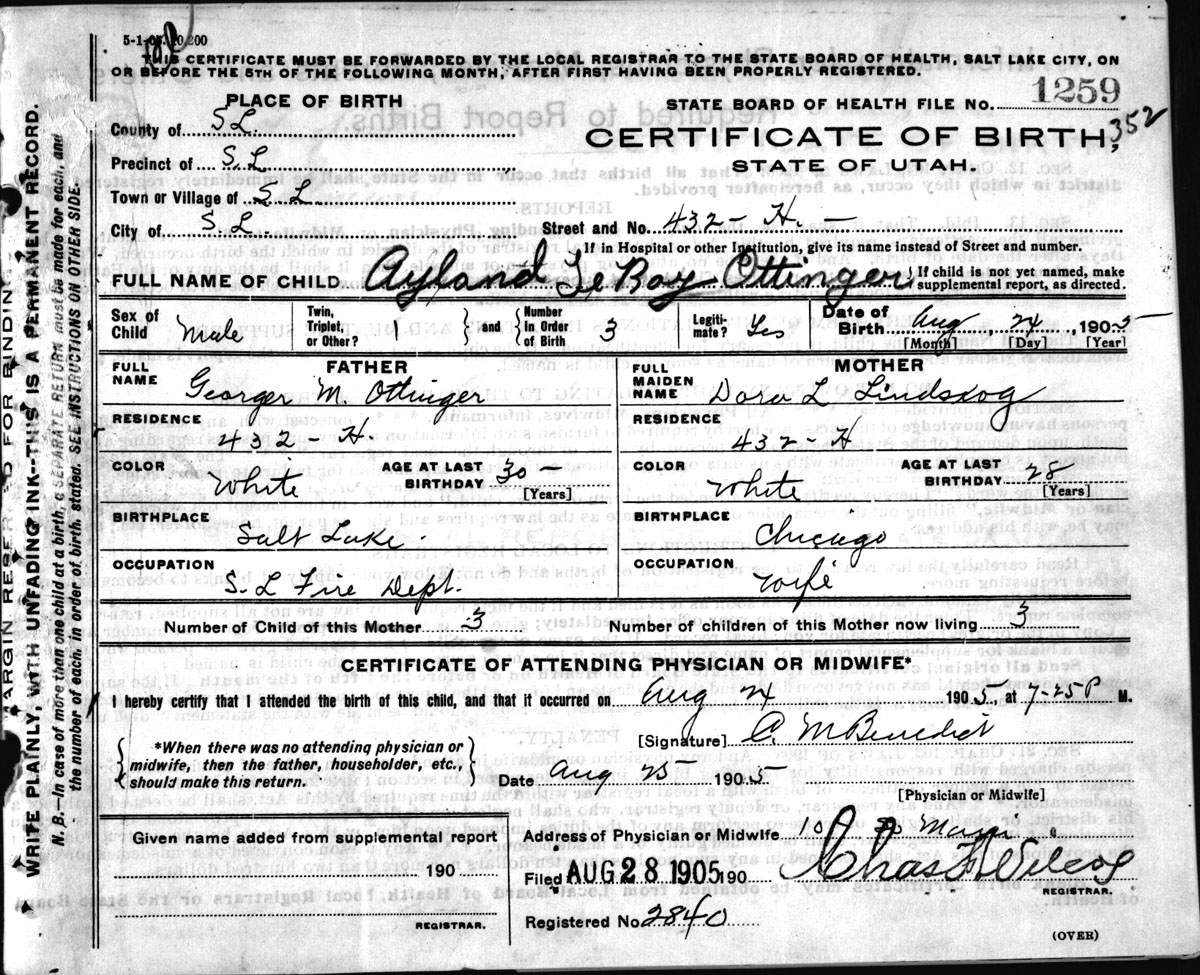 5-1-05. 10,200
THIS CERTIFICATE MUST BE FORWARDED BY THE LOCAL REGISTRAR TO THE STATE BOARD OF HEALTH, SALT LAKE CITY, ON
OR BEFORE THE 5TH OF THE FOLLOWING MONTH, AFTER FIRST HAVING BEEN PROPERLY REGISTERED.
PLACE OF BIRTH
STATE BOARD OF HEALTH FILE No. 1259
County of S L
CERTIFICATE OF BIRTH, 352
Precinct of S. L
STATE OF UTAH.
Town or Village of S L
City of S. L Street and No. 432 - H. -
If in Hospital or other Institution, give its name instead of Street and number.
FULL NAME OF CHILD Ayland Le Roy Ottinger { If child is not yet named, make
supplemental report, as directed.
Sex of Child Male Twin, Triplet, or Other? 1 } and { Number In Order of Birth 3 Legiti-mate? Yes Date of Birth Aug 24, 1905
[Month] [Day] [Year]
FATHER MOTHER
FULL NAME George M. Ottinger FULL MAIDEN NAME Dora L Lindskog
RESIDENCE RESIDENCE
432 - H. 432 - H
COLOR White AGE AT LAST BIRTHDAY 30 - COLOR White AGE AT LAST BIRTHDAY 28
[Years] [Years]
BIRTHPLACE BIRTHPLACE
Salt Lake. Chicago
OCCUPATION OCCUPATION
S. L Fire Dept. Wife
Number of Child of this Mother 3 Number of children of this Mother now living 3
CERTIFICATE OF ATTENDING PHYSICIAN OR MIDWIFE*
I hereby certify that I attended the birth of this child, and that it occurred on Aug 24 1905, at 7-25 P M.
[Signature] C. M Benedict
{ *When there was no attending physician or
midwife, then the father, householder, etc.,
should make this return. }
Date Aug 25 1905.
[Physician or Midwife]
Given name added from supplemental report
190
REGISTRAR.
Address of Physician or Midwife
Filed AUG 28 1905 190 Chas
REGISTRAR.
Registered No. 2840
(OVER)
MARGIN RESERVED FOR BINDING
WRITE PLAINLY, WITH UNFADING INK--THIS IS A PERMANENT RECORD.
N. B.—In case of more than one child at a birth, a SEPARATE RETURN must be made for each, and
the number of each, in order of birth, stated. SEE INSTRUCTIONS ON OTHER SIDE.